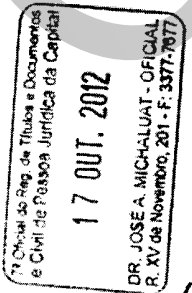 7º Oficial do Reg. de Títulos e Documentos
e Civil de Pessoa Jurídica da Capital
17 OUT. 2012
DR. JOSÉ A. MICHALUAT - OFICIAL
R. XV de Novembro, 201 - F: 3377-7677